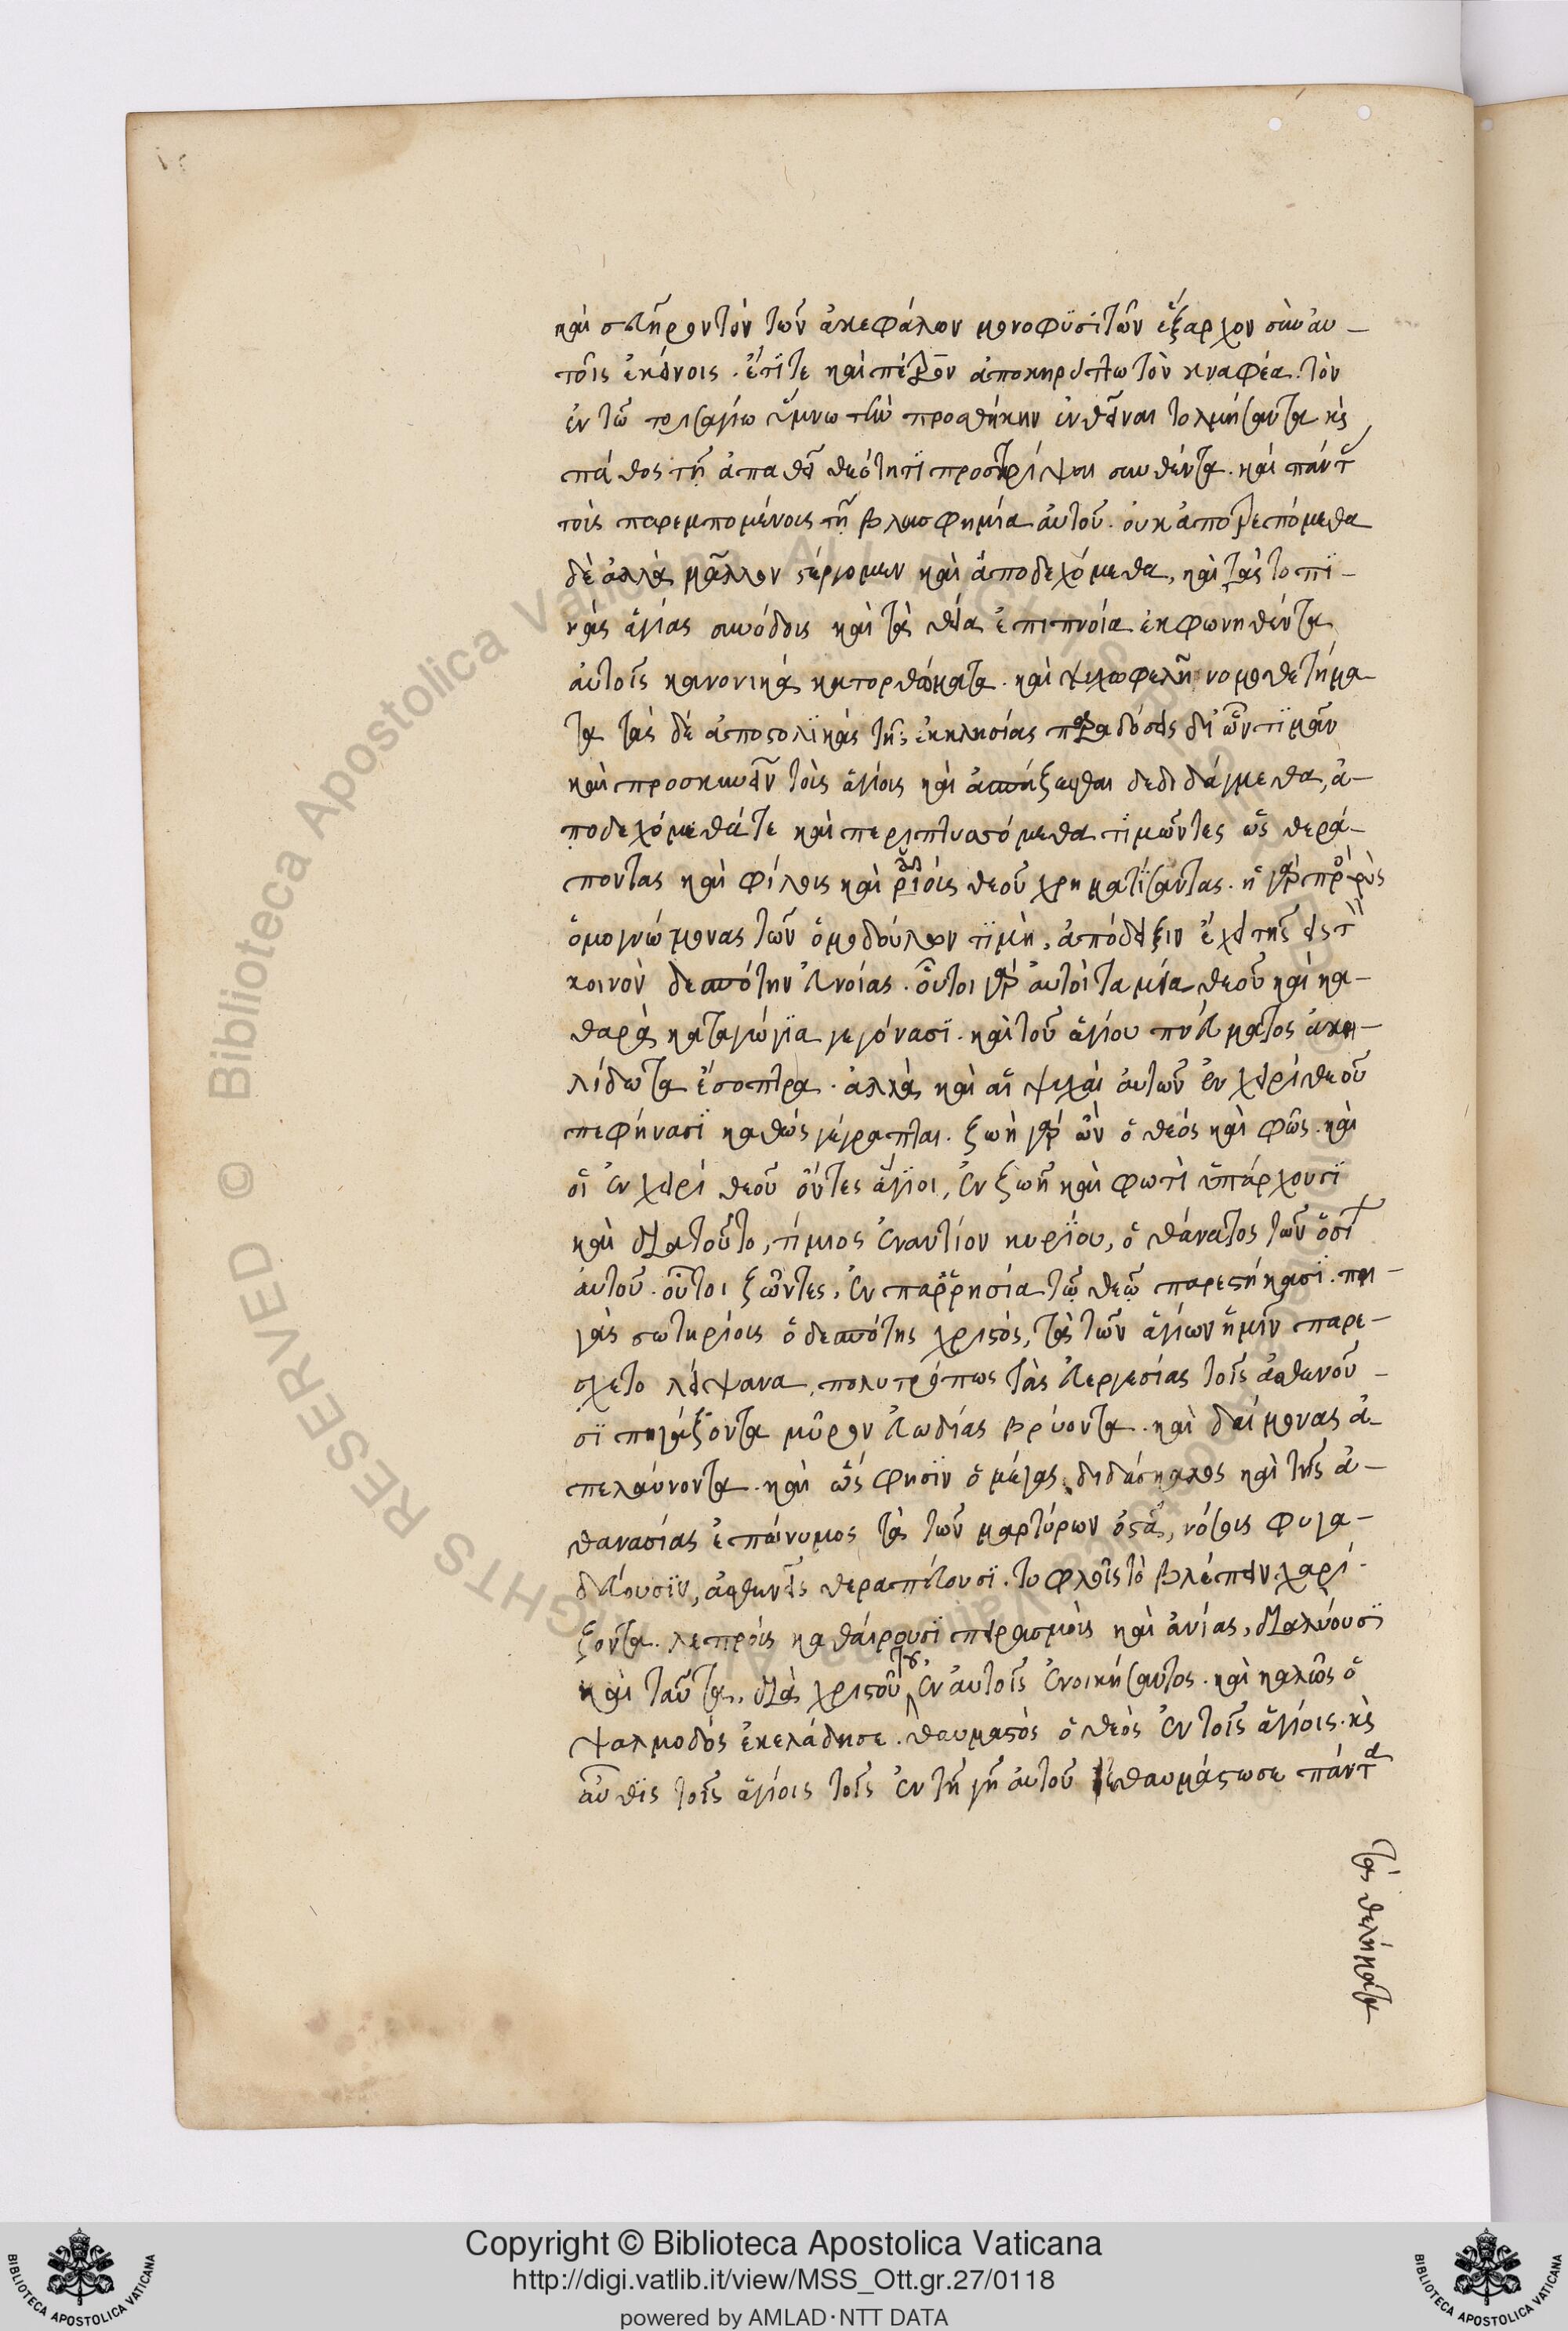 καὶ σευῆρον τὸν τῶν ἀκεφάλων μονοφϋσιτῶν ἔξαρχον σὺν αὐ-
τοῖς ἐκείνοις. ἔτϊ τε καὶ πέτρον ἀποκηρύττω τὸν κναφέα. τὸν
ἐν τῶ τρισαγίω ὕμνω τὴν προσθήκην ἐνθεῖναι τολμήσαντα κὶ
πάθος τῆ ἀπαθεῖ θεότητϊ προστρίψαι συνθέντα. καὶ πάντ
τοὶς παρεμπομένοις τῆ βλασφημία αὐτοῦ. οὐκ ἀποτρεπόμεθα
δὲ ἀλλὰ μᾶλλον στέργομεν καὶ ἀποδεχόμεθα, καὶ τὰς τοπϊ-
κὰς ἁγίας συνόδους καὶ τὰ θεία ἐπιπνοία ἐκφωνηθέντα
αὐτοῖς κανονικὰ κατορθώματα. καὶ ψυχωφελῆ νομοθετήμα-
τα τὰς δὲ ἀποστολϊκὰς τῆς ἐκκλησίας παραδόσεις δι' ὧν τϊμᾶν
καὶ προσκυνεῖν τοὶς ἁγίοις καὶ ἀσπάζεσθαι δεδιδάγμεθα, ἀ-
ποδεχόμεθά τε καὶ περιπτυσσόμεθα τϊμῶντες ὡς θερά-
ποντας καὶ φίλους καὶ υἱοὺς θεοῦ χρηματΐσαντας. ἡ γὰρ πρὸς τοὺς
ὁμογνώμονας τῶν ὁμοδούλων τϊμὴ, ἀπόδειξιν ἔχει τῆς εἰς τ
κοινὸν δεσπότην εὐνοίας. οὗτοι γὰρ αὐτοὶ ταμεία θεοῦ καὶ κα-
θαρὰ καταγώγϊα γεγόνασϊ. καὶ τοῦ ἁγίου πνεύματος ἀκη-
λίδωτα ἔσοπτρα. ἀλλὰ καὶ αἱ ψυχαὶ αὐτῶν ἐν χειρὶ θεοῦ
πεφήνασϊ καθὼς γέγραπται. ζωὴ γὰρ ὢν ὁ θεὸς καὶ φῶς. καὶ
οἱ ἐν χειρὶ θεοῦ ὄντες ἅγϊοι, ἐν ζωῆ καὶ φωτὶ ὑπάρχουσϊ
καὶ διατοῦτο, τίμιος ἐναντίον κυρΐου, ὁ θάνατος τῶν ὁσί
αὐτοῦ. οὗτοι ζῶντες, ἐν παῤῥησία τῶ θεῶ παρεστήκασϊ. πη-
γὰς σωτηρίοις ὁ δεσπότης χριστὸς, τὰ τῶν ἁγίων ἡμῖν παρέ-
σχετο λείψανα, πολυτρόπως τὰς εὐεργεσίας τοῖς ἀσθενοῦ-
σϊ πηγάζοντα μῦρον εὐωδίας βρύοντα. καὶ δαίμονας ἀ-
πελαύνοντα. καὶ ὥς φησϊν ὁ μέγας διδάσκαλος καὶ τῆς ἀ-
θανασίας ἐπώνυμος τὰ τῶν μαρτύρων ὀστᾶ, νόσους φυγα-
δεύουσϊν, ἀσθενεῖς θεραπεύουσϊ. τυφλοῖς τὸ βλέπειν χαρί-
ζονται. λεπροὺς καθαίρουσϊ πειρασμοὺς καὶ ἀνίας, διαλύουσϊ
καὶ ταῦτα, διὰ χριστοῦ τοῦ ἐν αὐτοῖς ἐνοικήσαντος. καὶ καλῶς ὁ
ψαλμοδὸς ἐκελάδησε. θαυμαστὸς ὁ θεὸς ἐν τοῖς ἁγίοις. κὶ
αὖθϊς τοῖς ἁγίοις τοῖς ἐν τῆ γῆ αὐτοῦ ἐθαυμάστωσε πάντα
τὰ θελήματα
Copyright © Biblioteca Apostolica Vaticana
http://digi.vatlib.it/view/MSS_Ott.gr.27/0118
powered by AMLAD·NTT DATA